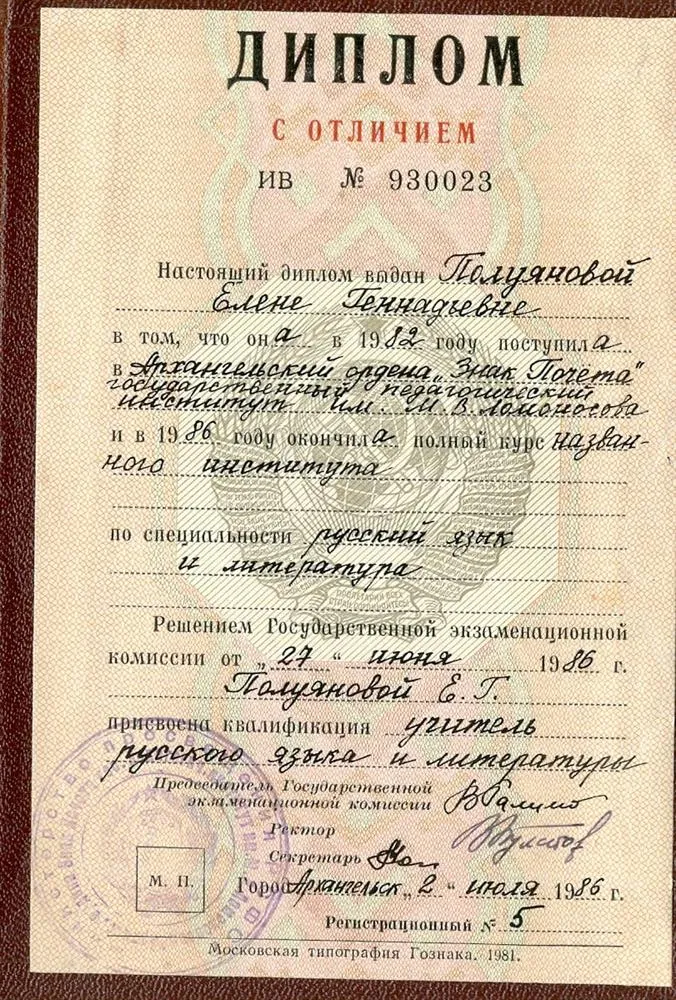 ДИПЛОМ
С ОТЛИЧИЕМ
ИВ № 930023
Настоящий диплом выдан Полуяновой
Елене Геннадьевне
в том, что она в 1982 году поступила
в Архангельский ордена „Знак Почета"
государственный педагогический
институт им. М.В. Ломоносова
и в 1986 году окончила полный курс назван-
ного института
по специальности русский язык
и литература
Решением Государственной экзаменационной
комиссии от „27" июня 1986 г.
Полуяновой Е. Г.
присвоена квалификация учитель
русского языка и литературы
Председатель Государственной
экзаменационной комиссии
Ректор
Секретарь
М. П.
Город Архангельск „2" июля 1986 г.
Регистрационный № 5
Московская типография Гознака. 1981.